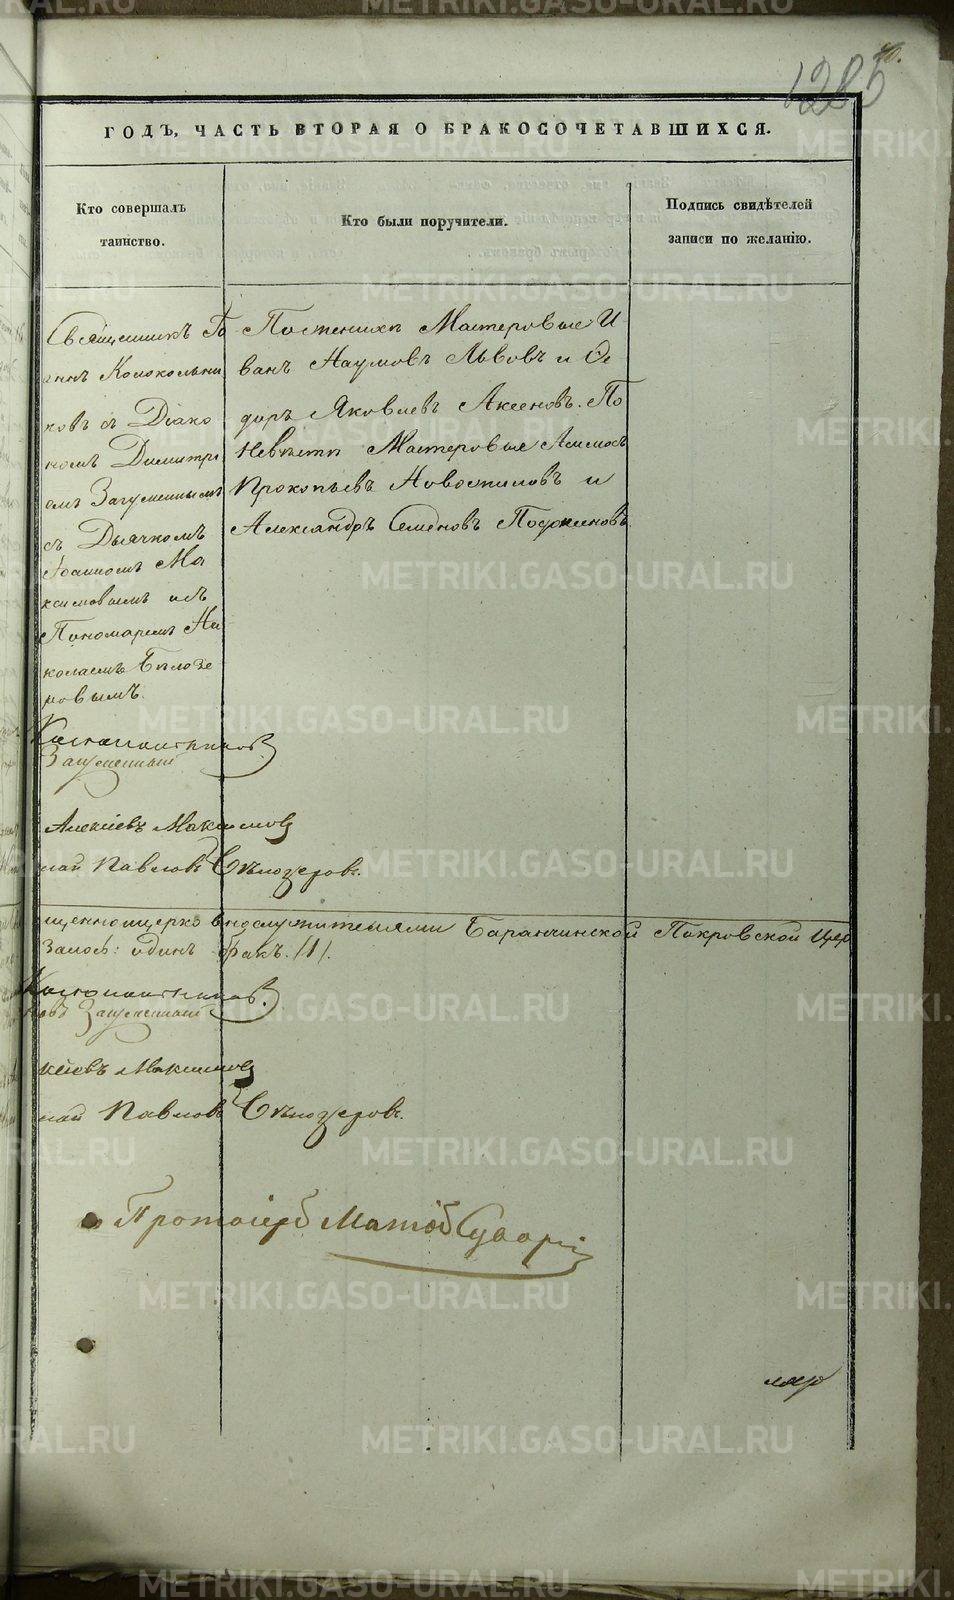 1285
ГОДЪ, ЧАСТЬ ВТОРАЯ О БРАКОСОЧЕТАВШИХСЯ.
Кто совершалъ
таинство.
Кто были поручители.
Подпись свидѣтелей
записи по желанію.
Священникъ Іо
аннъ Колокольни
ковъ съ Діако
номъ Димитрі
емъ Загуменнымъ
съ Дьячкомъ
Іоанномъ Ма
ксимовымъ и съ
Пономаремъ Ни
колаемъ Бѣлозе
ровымъ.
По женихѣ Мастеровые И
ванъ Наумовъ Львовъ и Ѳе
доръ Яковлевъ Аксеновъ. По
Невѣстѣ Мастеровые
Прокопьевъ Новоспиловъ и
Александръ Семеновъ
Загуменный
Алексіевъ Максимовъ
лай Павловъ Бѣлозеровъ.
щенноцерковнослужителями Баранчинской Покровской Цер
залось: одинъ бракъ. /1/.
Загуменный
ксіевъ Максимовъ
лай Павловъ Бѣлозеровъ.
Протоіерей
METRIKI.GASO-URAL.RU